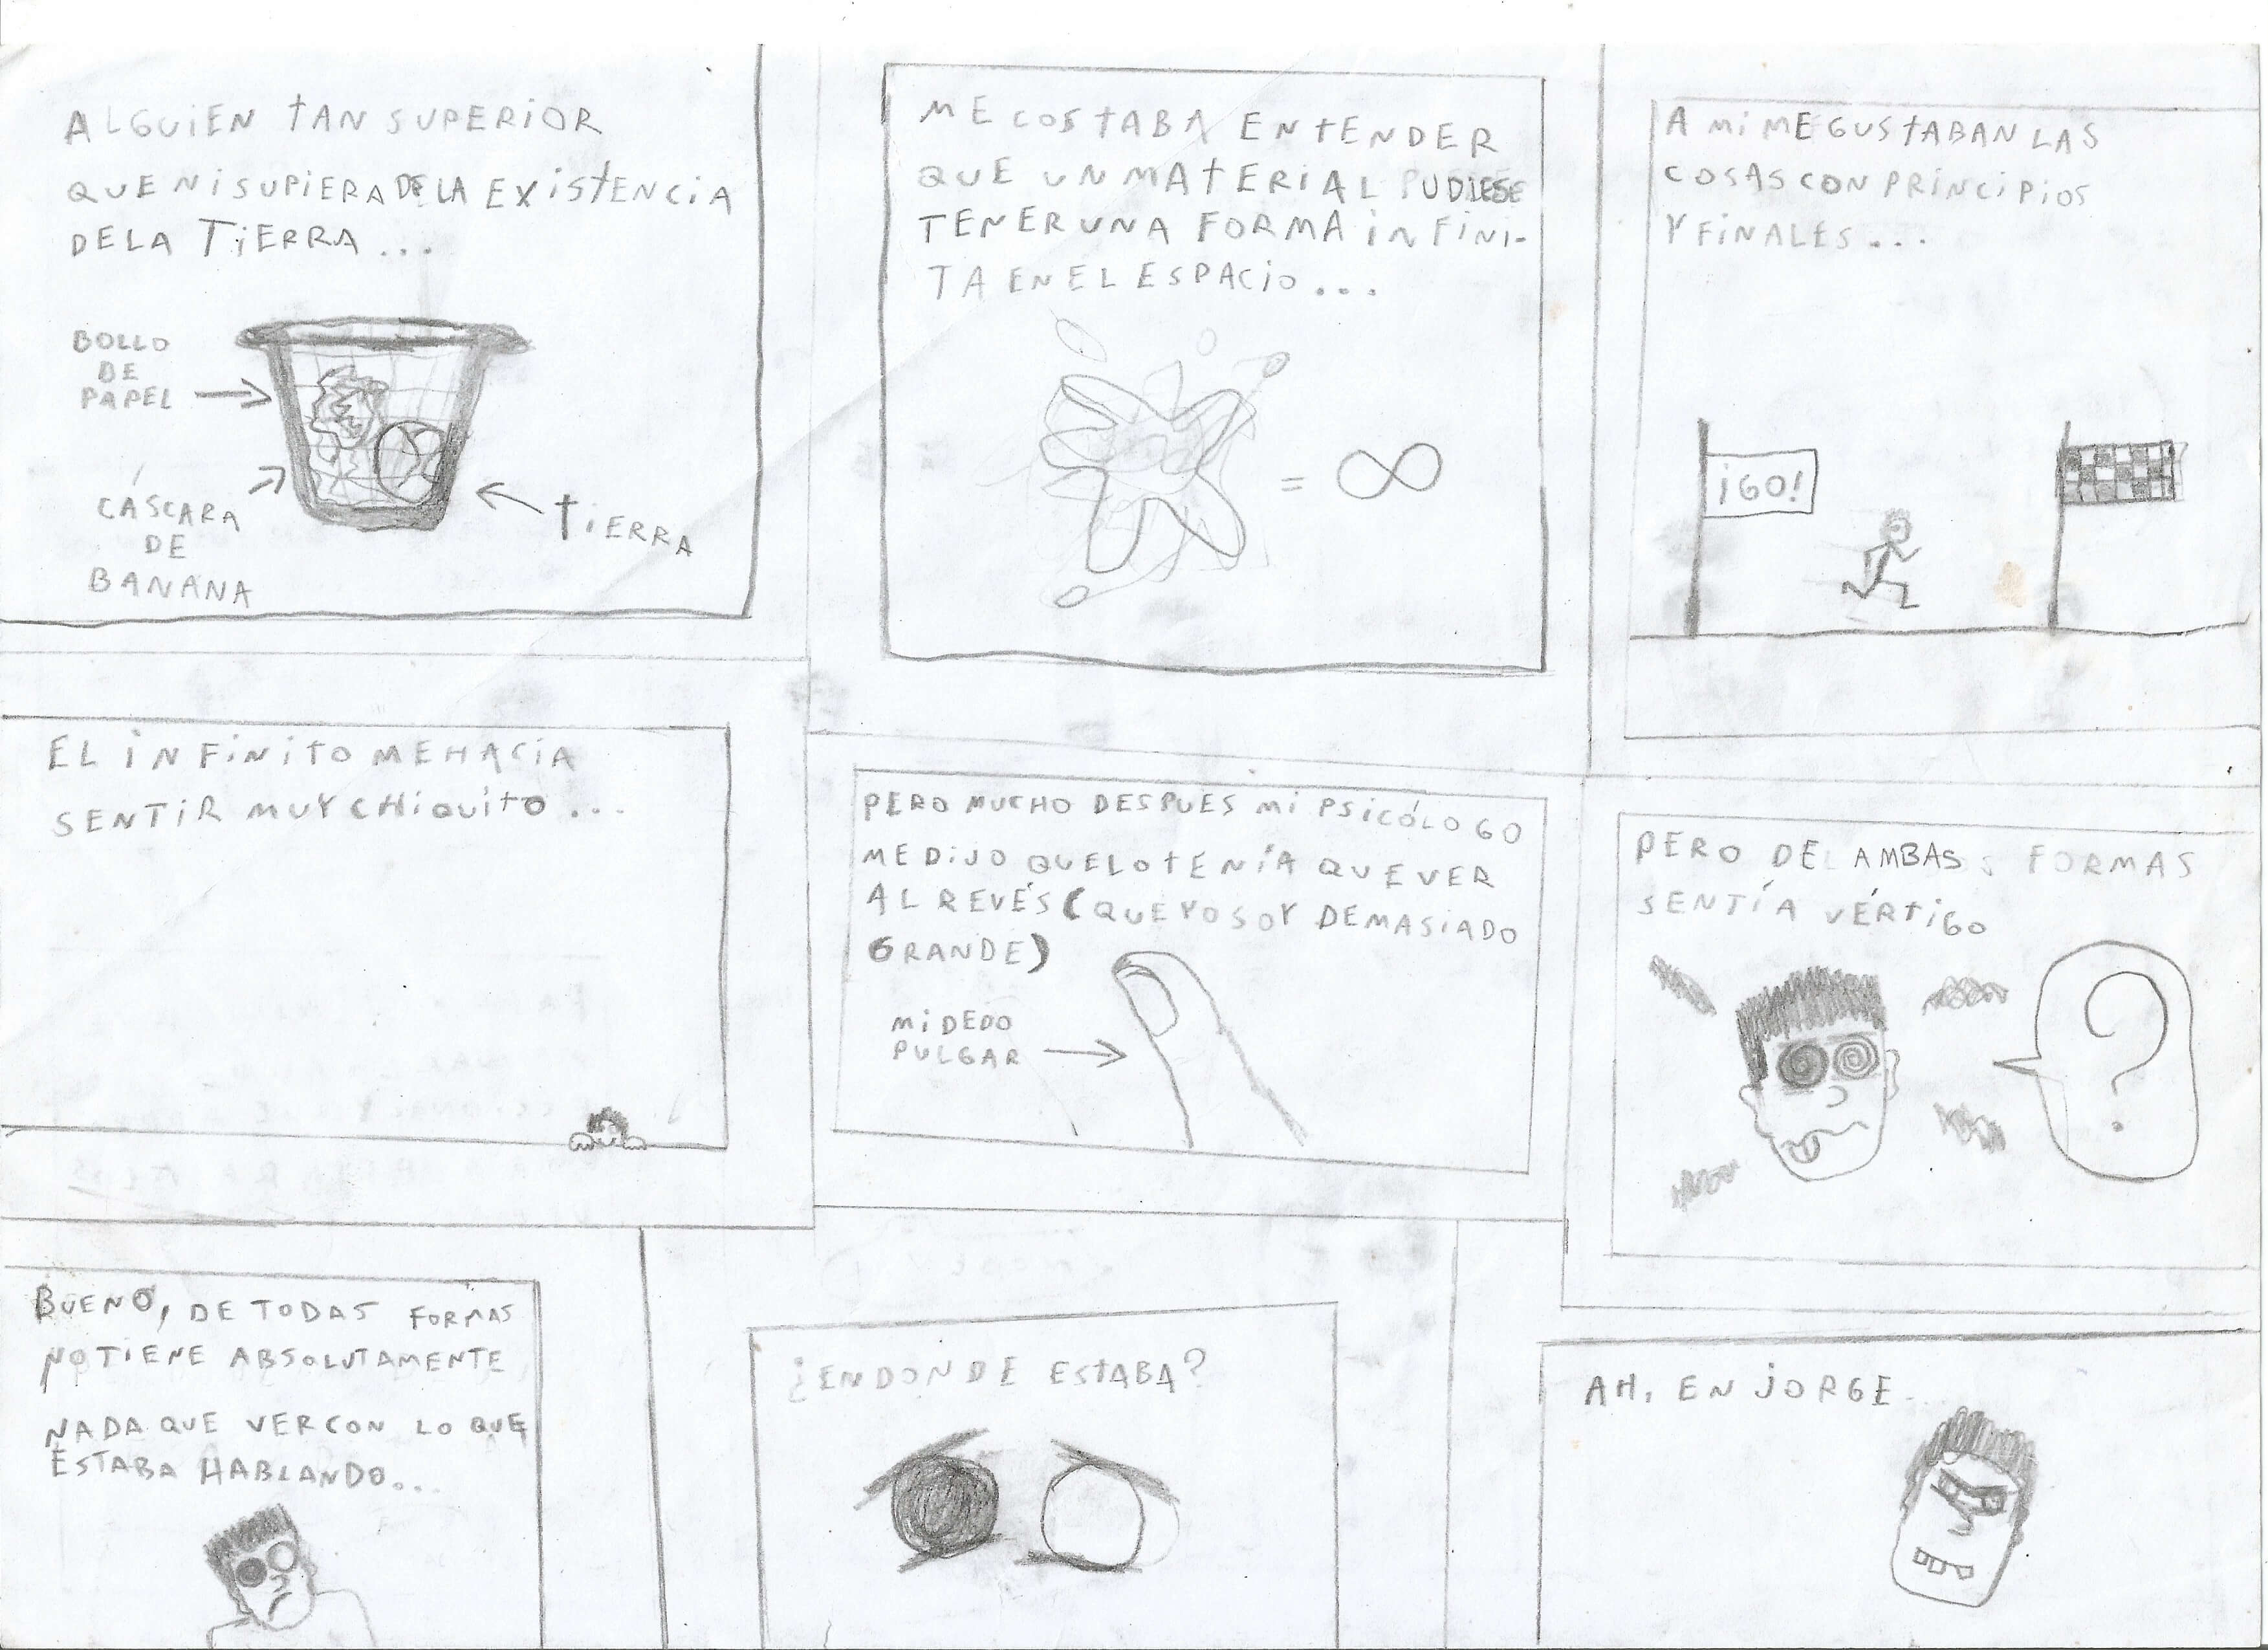 ALGUIEN TAN SUPERIOR
QUE NI SUPIERA DE LA EXISTENCIA
DE LA TIERRA...
BOLLO
DE
PAPEL
CÁSCARA
DE
BANANA
TIERRA
ME COSTABA ENTENDER
QUE UN MATERIAL PUDIESE
TENER UNA FORMA INFINI-
TA EN EL ESPACIO...
= ∞
A MI ME GUSTABAN LAS
COSAS CON PRINCIPIOS
Y FINALES...
¡GO!
EL INFINITO ME HACIA
SENTIR MUY CHIQUITO...
PERO MUCHO DESPUES MI PSICÓLOGO
ME DIJO QUE LO TENÍA QUE VER
AL REVÉS (QUE YO SOY DEMASIADO
GRANDE)
MI DEDO
PULGAR
PERO DE AMBAS FORMAS
SENTÍA VÉRTIGO
?
BUENO, DE TODAS FORMAS
NO TIENE ABSOLUTAMENTE
NADA QUE VER CON LO QUE
ESTABA HABLANDO...
¿EN DONDE ESTABA?
AH, EN JORGE.